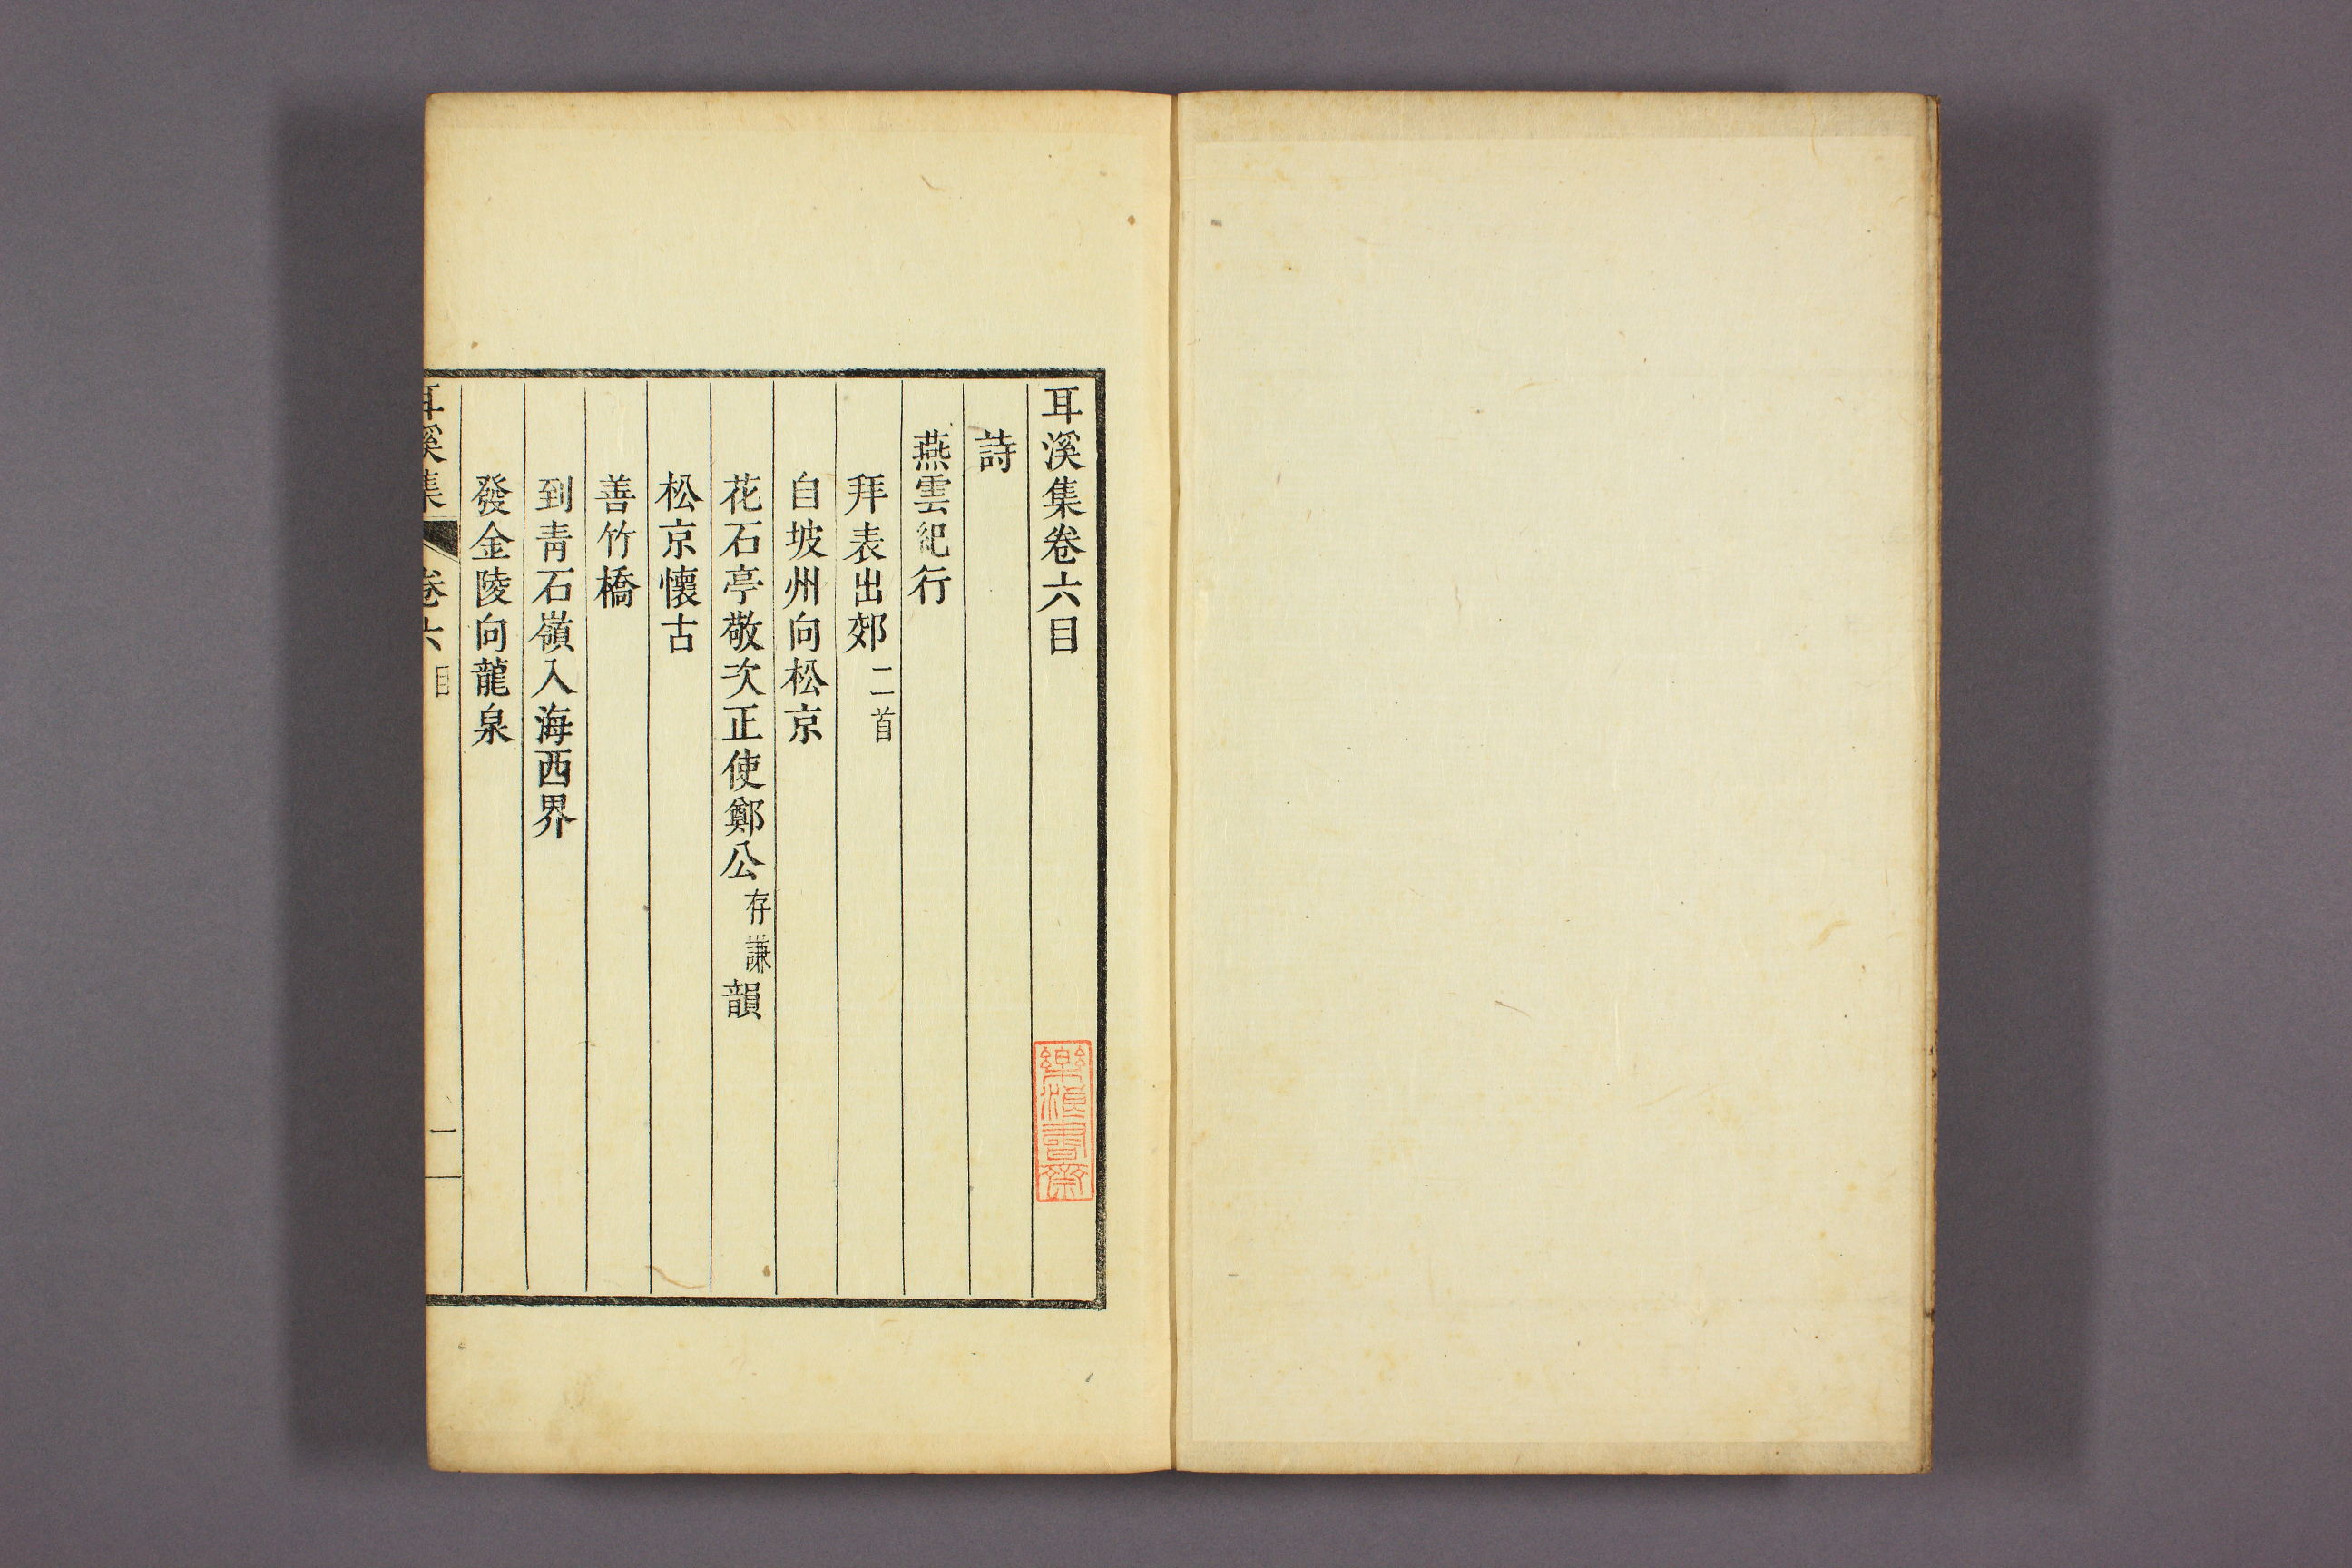 耳溪集卷六目
詩
燕雲紀行
拜表出郊二首
自坡州向松京
花石亭敬次正使鄭公存謙韻
松京懷古
善竹橋
到靑石嶺入海西界
發金陵向龍泉
耳溪集
卷六
目
一
樂浪書齋